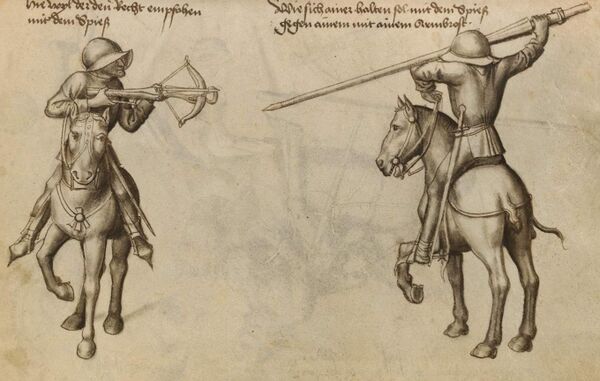 Hie wyl der den Recht empfahen
mit dem Spieß
Wie sich ainer halten sol mit dem Spieß
gegen ainem mit ainem Armbrost